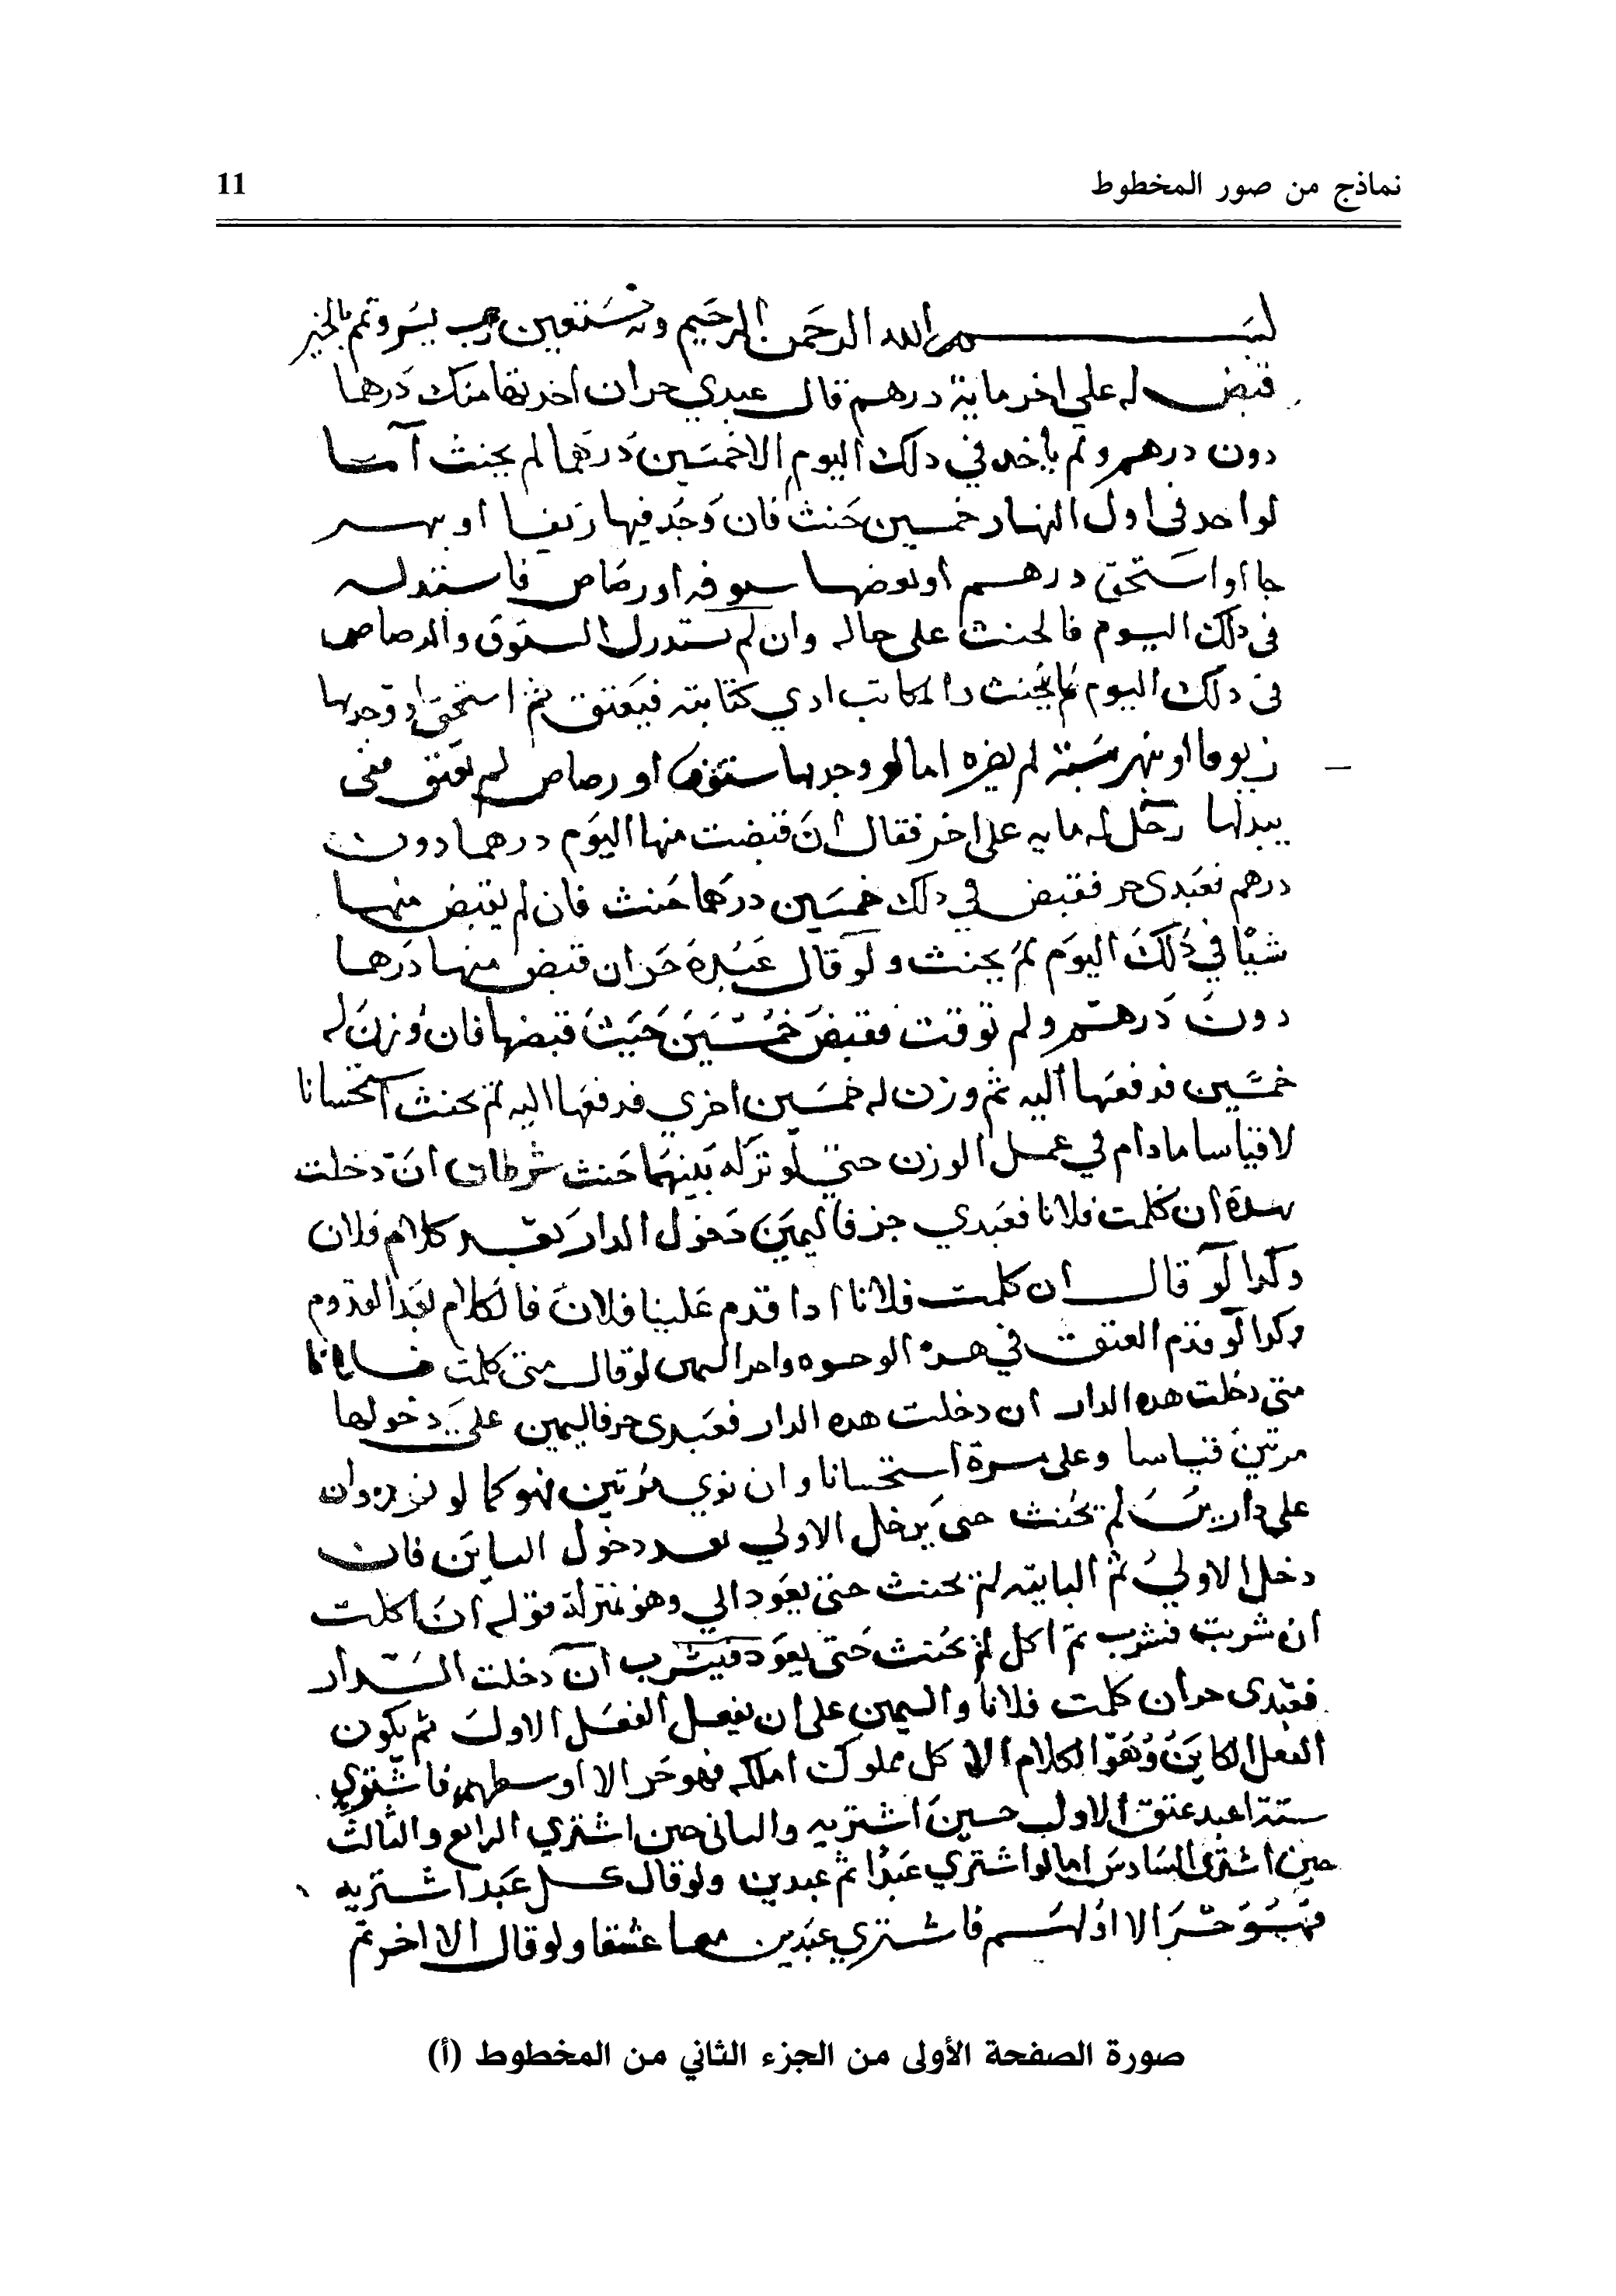 نماذج من صور المخطوط
11
بسم الله الرحمن الرحيم وبه نستعين رب يسر وتمم بالخير
قبض له علي اخر ماية درهم قال عبدي حر ان اخدتها منك درهما
دون درهم ولم ياخد في دلك اليوم الا خمسين درهما لم يحنث
لو اخد في اول النهار خمسين حنث فان وجد فيها زيفا او بهر
جا او استحق درهم او بعضها ستوقه او رصاص فاستبدله
في دلك اليوم فالحنث علي حاله وان لم يستبدل الستوق والرصاص
في دلك اليوم لم يحنث المكاتب ادي كتابته فيعتق ثم استحق او وجدها
زيوفا او بنهرجة لم يضره اما لو وجدها ستوقه او رصاص لم يعتق
يبدلها رجل له مايه علي اخر فقال ان قبضت منها اليوم درهما دون
درهم فعبدي حر فقبض في دلك خمسين درهما حنث فان لم يقبض منها
شيا في دلك اليوم لم يحنث ولو قال عبده حر ان قبض منها درهما
دون درهم ولم توقت فقبض خمسين حيث قبضها فان وزن له
خمسين فدفعها اليه ثم وزن له خمسين اخري فدفعها اليه لم يحنث استحسانا
لا قياسا ما دام في عمل الوزن حتي لو تركه بينهما حنث شرطان ان دخلت
هده ان كلمت فلانا فعبدي حر فاليمين دخول الدار بعد كلام فلان
وكدا لو قال ان كلمت فلانا ادا قدم علينا فلان فالكلام بعد القدوم
وكدا لو قدم العتق في هده الوجوه واحر لو قال متي كلمت فلانا
متي دخلت هده الدار ان دخلت هده الدار فعبدي حر فاليمين علي دخولها
مرتين قياسا وعلي مرة استحسانا وان نوي مرتين فهو كما لو
علي دارين لم يحنث حتي يدخل الاولي بعد دخول الثانية فان
دخل الاولي ثم الثانيه لم يحنث حتي يعود الي وهو بمنزلة قوله ان اكلت
ان شربت فشرب ثم اكل لم يحنث حتي يعود فيشرب ان دخلت الدار
فعبدي حر ان كلمت فلانا واليمين علي ان يفعل الفعل الاول ثم يكون
الفعل الثاني وهو الكلام كل مملوك املكه فهو حر الا اوسطهم فاشتري
ستة اعبد عتق الاول حين اشتريه والثاني حين اشتري الرابع والثالث
حين اشتري السادس اما لو اشتري عبدا ثم عبدين ولو قال كل عبد اشتريه
فهو حر الا اولهم فاشتري عبدين معا عتقا ولو قال الا اخرهم
صورة الصفحة الأولى من الجزء الثاني من المخطوط (أ)